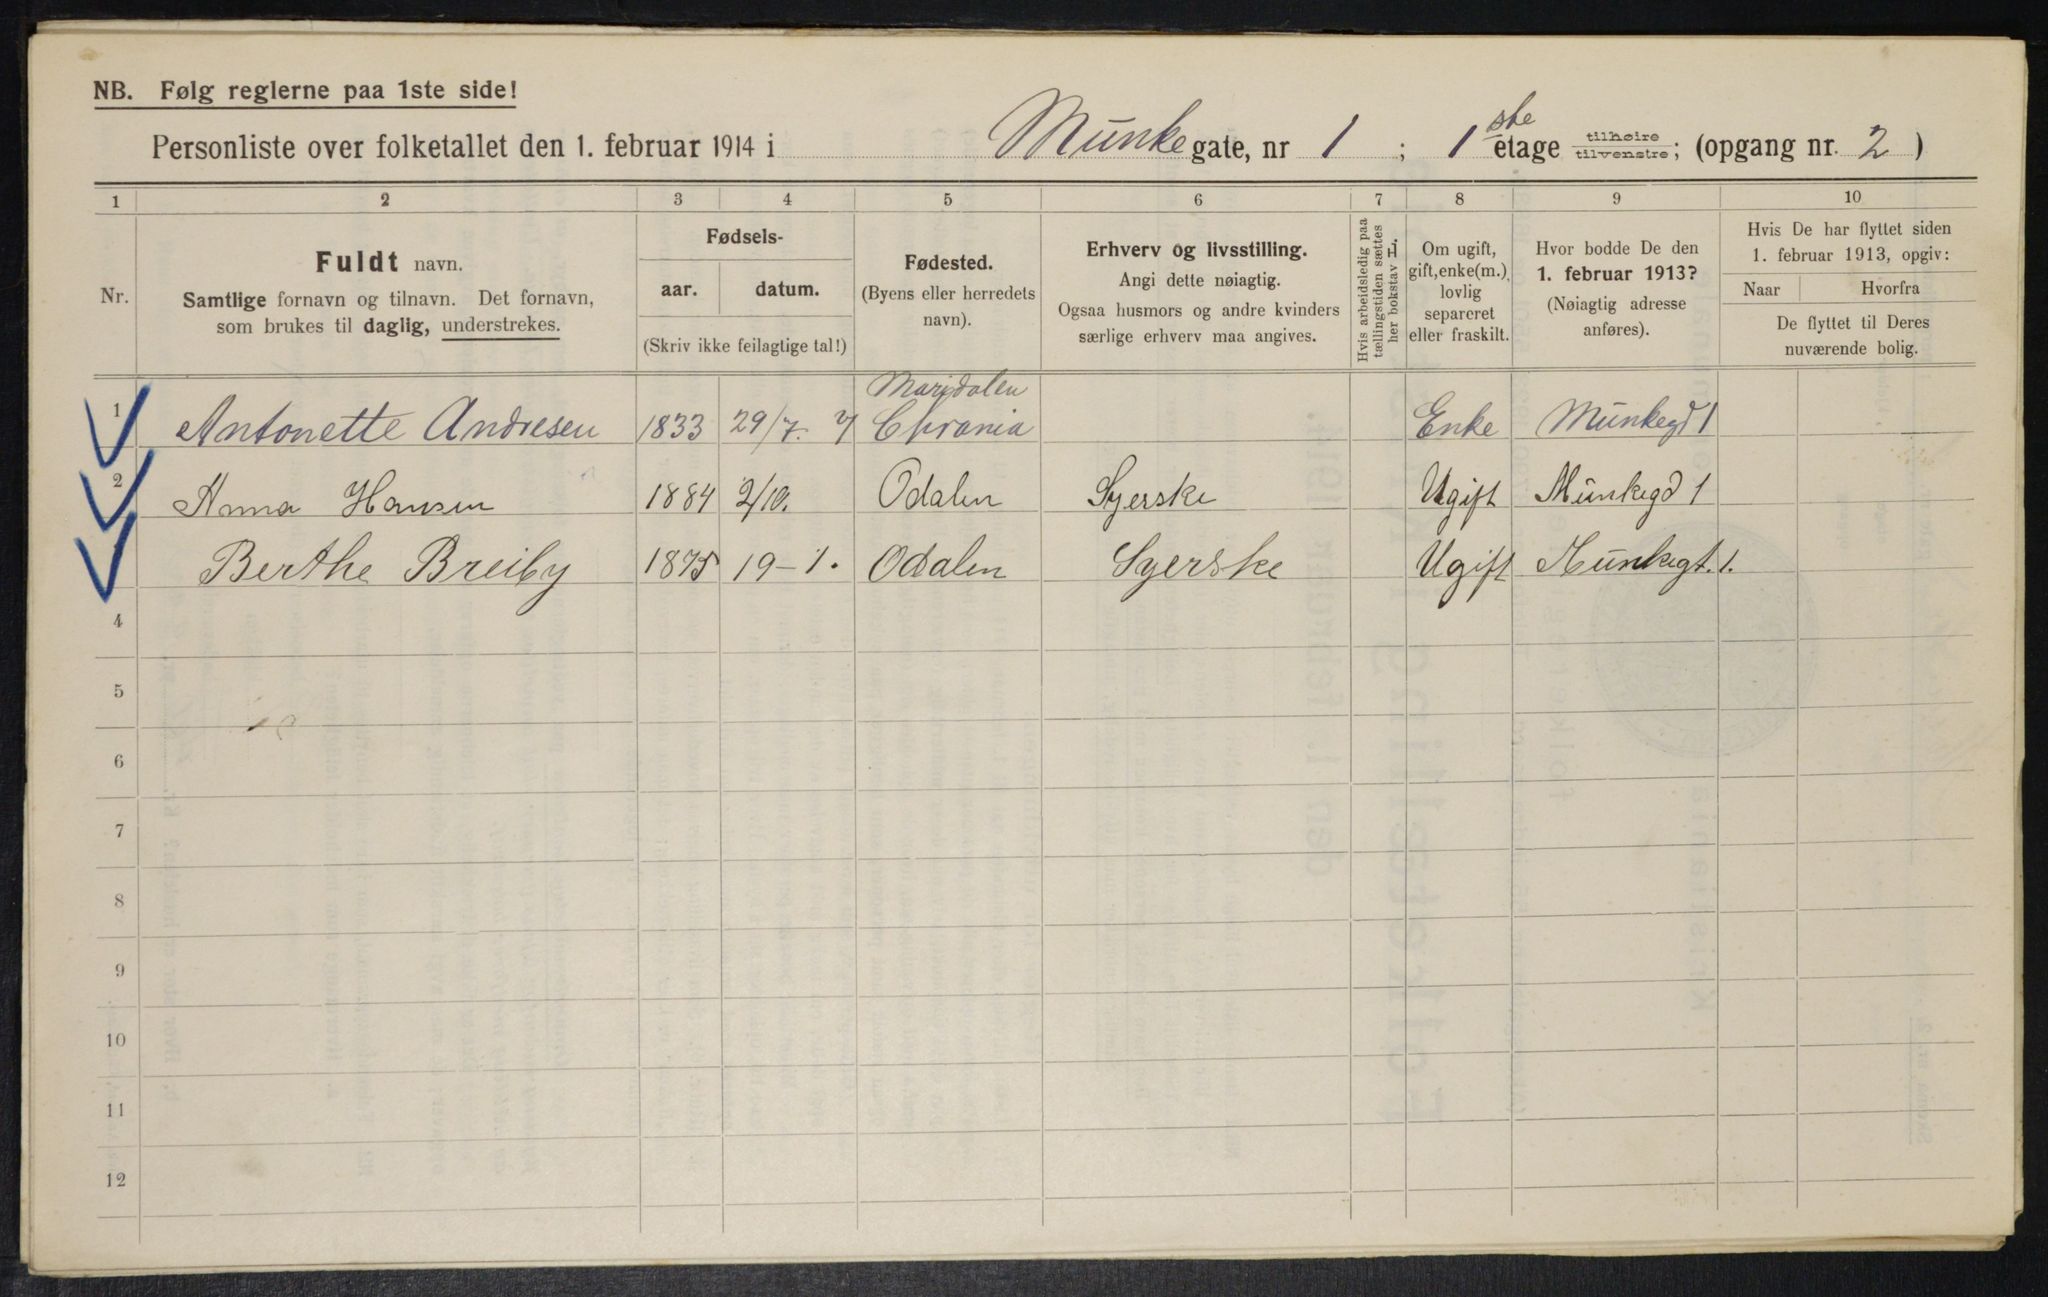 NB. Følg reglerne paa 1ste side!
Personliste over folketallet den 1. februar 1914 i Munkegate, nr 1 ; 1ste etage tilhøire/tilvenstre; (opgang nr. 2 )
1 2 3 4 5 6 7 8 9 10
Nr.
Fuldt navn.
Samtlige fornavn og tilnavn. Det fornavn,
som brukes til daglig, understrekes.
Fødsels-
aar. datum.
(Skriv ikke feilagtige tal!)
Fødested.
(Byens eller herredets
navn).
Erhverv og livsstilling.
Angi dette nøiagtig.
Ogsaa husmors og andre kvinders
særlige erhverv maa angives.
Hvis arbeidsledig paa
tællingstiden sættes
her bokstav L.
Om ugift,
gift, enke(m.),
lovlig
separeret
eller fraskilt.
Hvor bodde De den
1. februar 1913?
(Nøiagtig adresse
anføres).
Hvis De har flyttet siden
1. februar 1913, opgiv:
Naar Hvorfra
De flyttet til Deres
nuværende bolig.
Maridalen
1 Antonette Andresen 1833 29/7. Chrania Enke Munkegd 1
2 Anna Hansen 1884 2/10. Odalen Syerske Ugift Munkegd 1
Berthe Breiby 1875 19-1. Odalen Syerske Ugift Munkegt. 1.
4
5
6
7
8
9
10
11
12